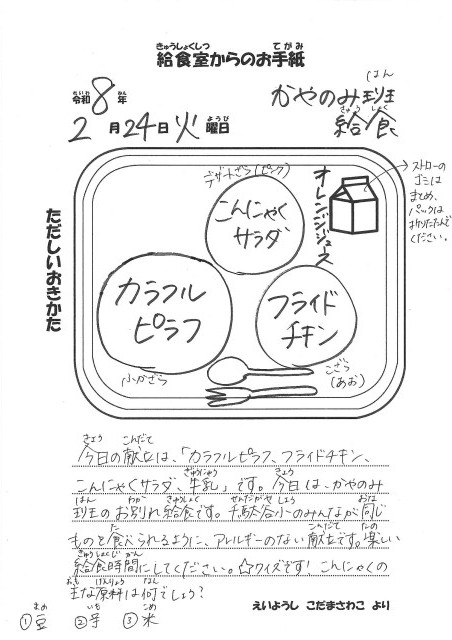 きゅうしょくしつ てがみ
給食室からのお手紙
れいわ ねん
令和8年
はん
かやのみ班
ようび
2月24日(火)曜日
きゅうしょく
給食
デザートざら(ピンク)
こんにゃく
サラダ
オレンジジュース
ストローの
ゴミは
まとめ、
パックは
折りたたんで
ください。
ただしいおきかた
カラフル
ピラフ
フライド
チキン
ふかざら
こざら
(あお)
きょう こんだて
今日の献立は、「カラフルピラフ、フライドチキン、
ぎゅうにゅう きょう
こんにゃくサラダ、牛乳」です。今日は、かやのみ
はん わか きゅうしょく せんだがや しょう おな
班のお別れ給食です。千駄谷小のみんなが同じ
た こんだて たの
ものを食べられるように、アレルギーのない献立です。楽しい
きゅうしょくじかん
給食時間にしてください。☆クイズです! こんにゃくの
おも げんりょう なに
主な原料は何でしょう?
まめ いも こめ
①豆 ②芋 ③米
えいようし こだまさわこ より